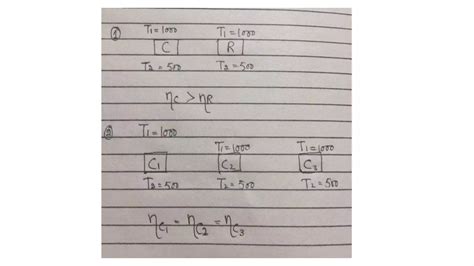 ① T₁=1000 T₁=1000
C R
T₂=500 T₂=500
ηC > ηR
② T₁=1000 T₁=1000 T₁=1000
C₁ C₂ C₃
T₂=500 T₂=500 T₂=500
ηC₁ = ηC₂ = ηC₃